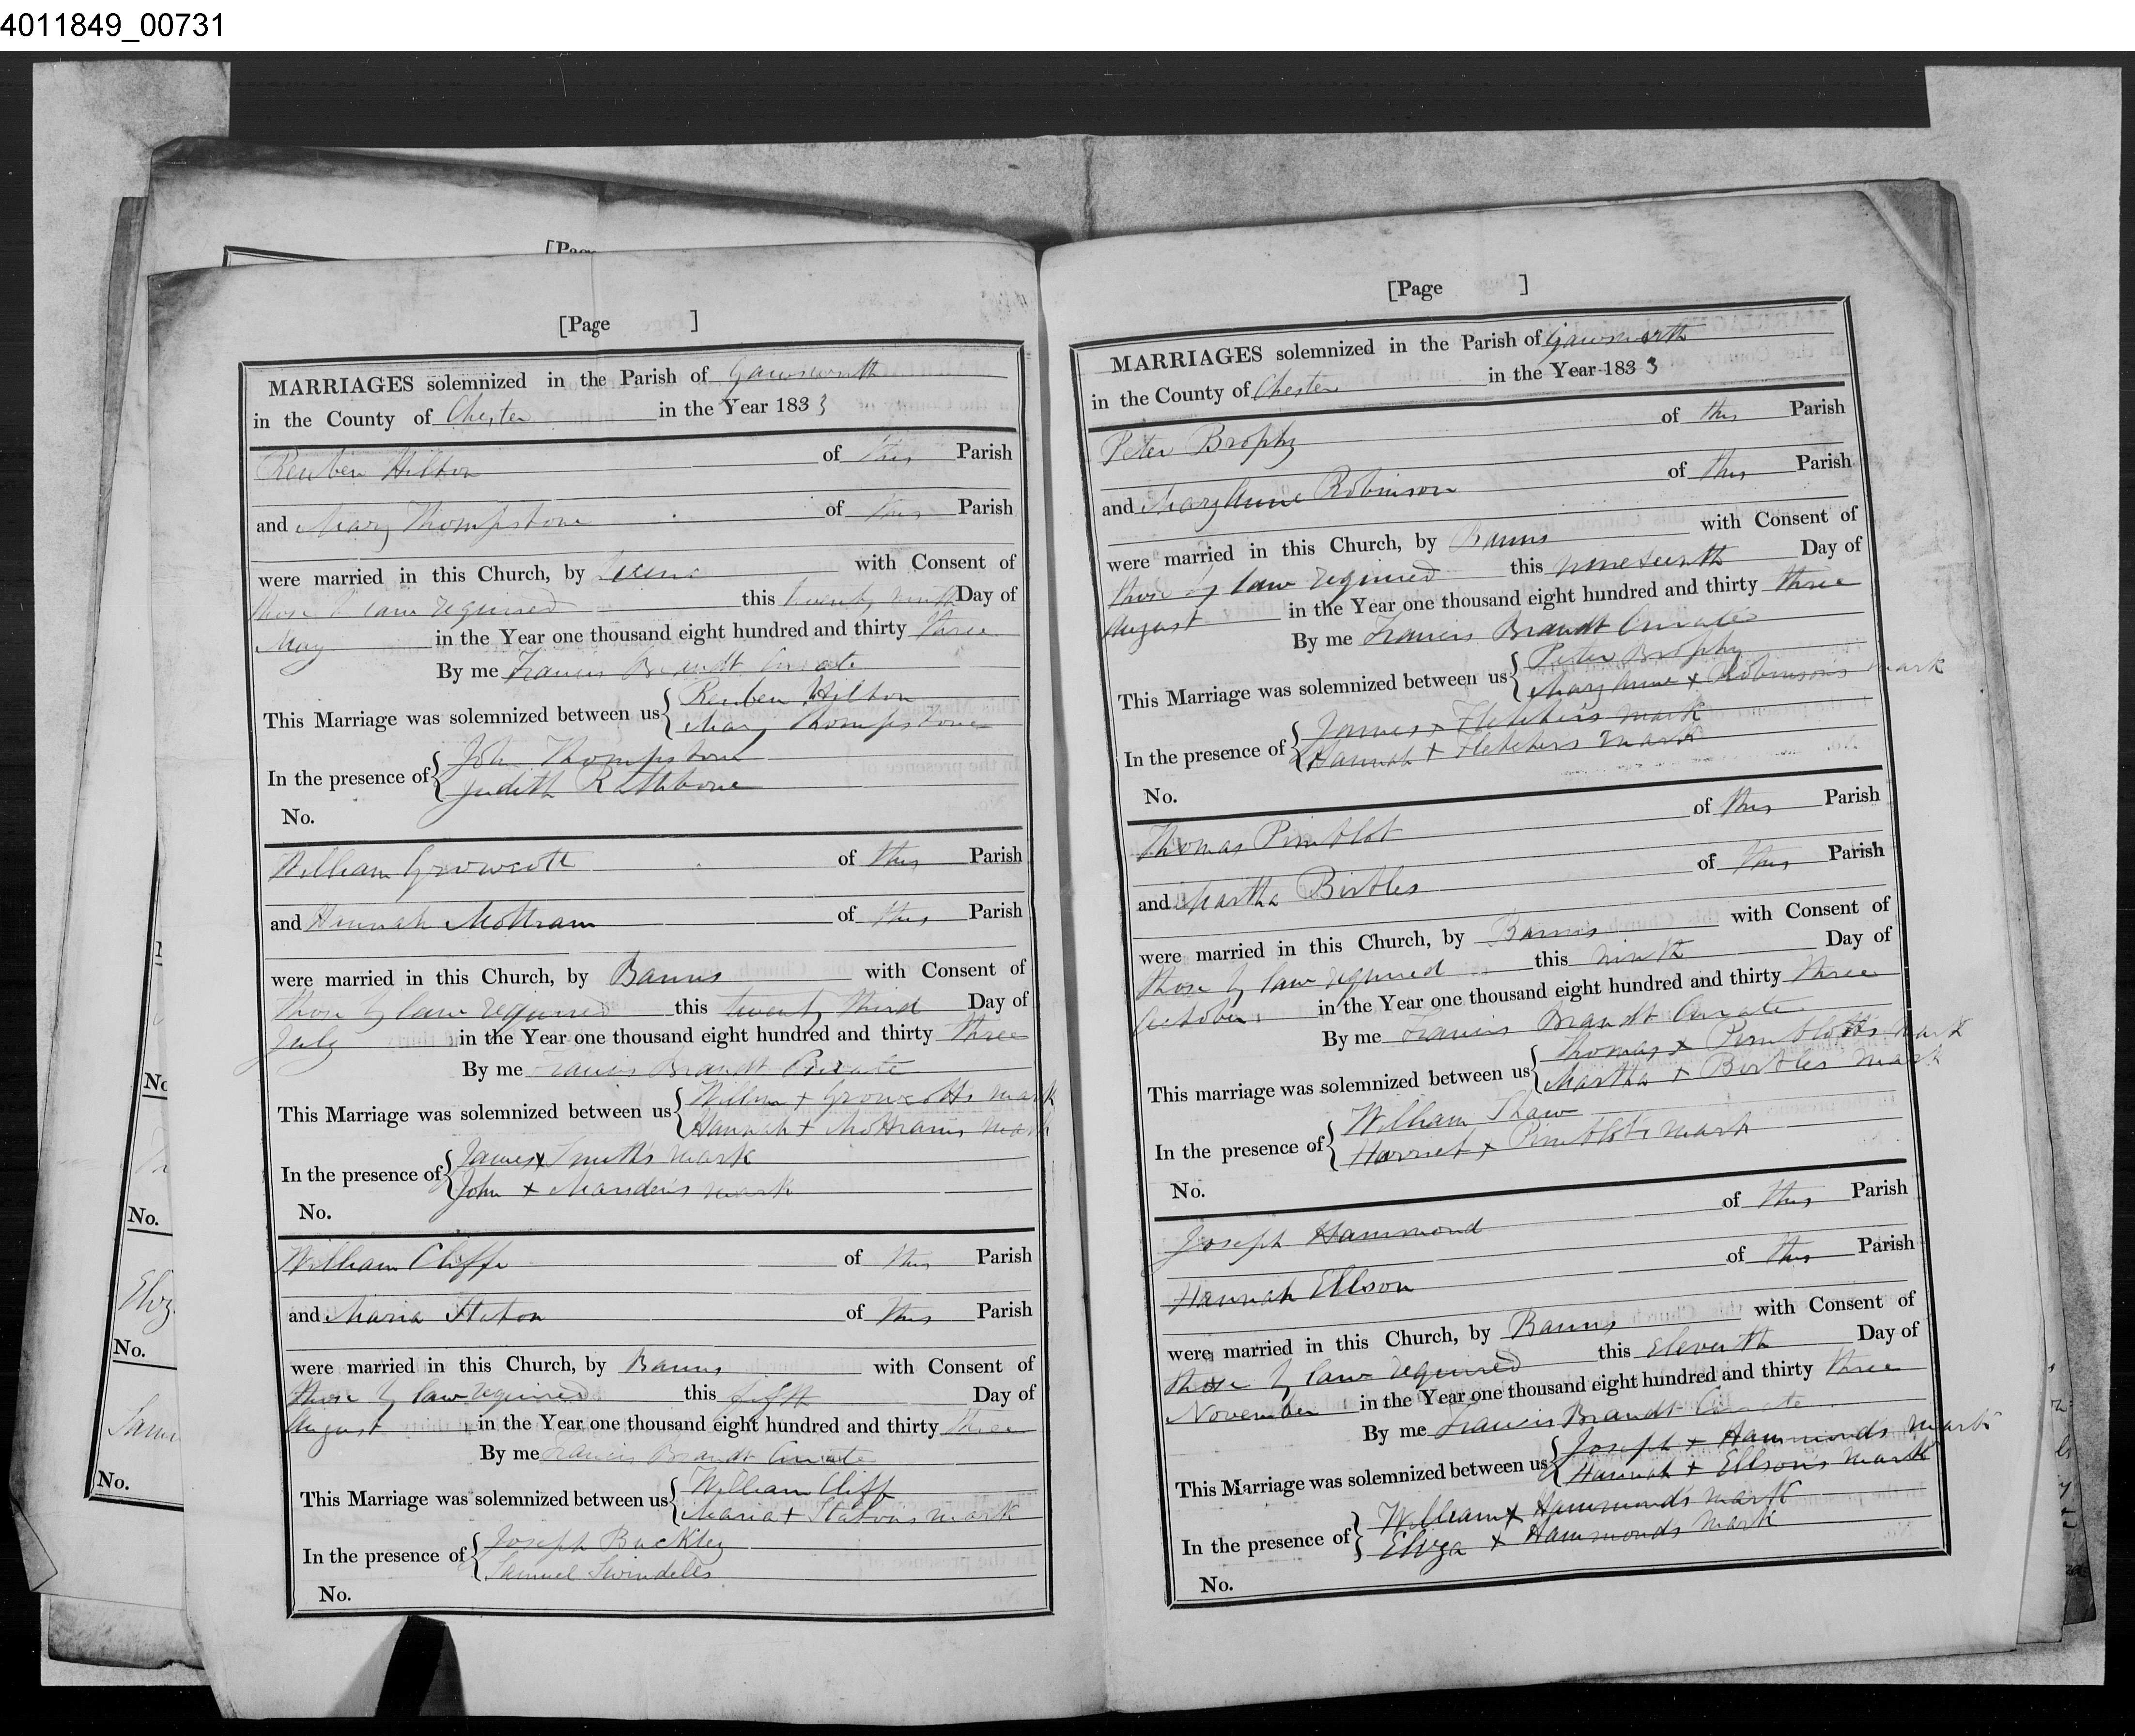 4011849_00731
[Page ]
MARRIAGES solemnized in the Parish of Gawsworth
in the County of Chester in the Year 1833
Reuben Hilton of this Parish
and Mary Thompstone of this Parish
were married in this Church, by License with Consent of
those by law required this twenty ninth Day of
May in the Year one thousand eight hundred and thirty three
By me Francis Brandt Curate
This Marriage was solemnized between us { Reuben Hilton
Mary Thompstone
In the presence of { John Thompstone
Judith Rathbone
No.
William Growcott of this Parish
and Hannah Mottram of this Parish
were married in this Church, by Banns with Consent of
those by law required this twenty third Day of
July in the Year one thousand eight hundred and thirty three
By me Francis Brandt Curate
This Marriage was solemnized between us { William + Growcotts mark
Hannah + Mottrams mark
In the presence of { James + Smith's mark
John + mark
No.
William Cliffe of this Parish
and Maria Staton of this Parish
were married in this Church, by Banns with Consent of
those by law required this fifth Day of
August in the Year one thousand eight hundred and thirty three
By me Francis Brandt Curate
This Marriage was solemnized between us { William Cliff
Maria + Statons mark
In the presence of { Joseph Buckley
Samuel Swindells
No.
[Page ]
MARRIAGES solemnized in the Parish of Gawsworth
in the County of Chester in the Year 1833
Peter Brophy of this Parish
and Mary Anne Robinson of this Parish
were married in this Church, by Banns with Consent of
those by law required this nineteenth Day of
August in the Year one thousand eight hundred and thirty three
By me Francis Brandt Curate
This Marriage was solemnized between us { Peter Brophy
Mary Anne + Robinson's mark
In the presence of { James + Fletchers mark
Hannah + Fletchers mark
No.
Thomas Pimblot of this Parish
and Martha Birtles of this Parish
were married in this Church, by Banns with Consent of
those by law required this ninth Day of
October in the Year one thousand eight hundred and thirty three
By me Francis Brandt Curate
This marriage was solemnized between us { Thomas + Pimblotts mark
Martha + Birtles mark
In the presence of { William Shaw
Harriet + Pimblots mark
No.
Joseph Hammond of this Parish
Hannah Ellson of this Parish
were married in this Church, by Banns with Consent of
those by law required this eleventh Day of
November in the Year one thousand eight hundred and thirty three
By me Francis Brandt Curate
This Marriage was solemnized between us { Joseph + Hammonds mark
Hannah + Ellson's mark
In the presence of } William + Hammond's mark
Eliza + Hammonds mark
No.
No.
No.
Eliz
No.
Sam
No.